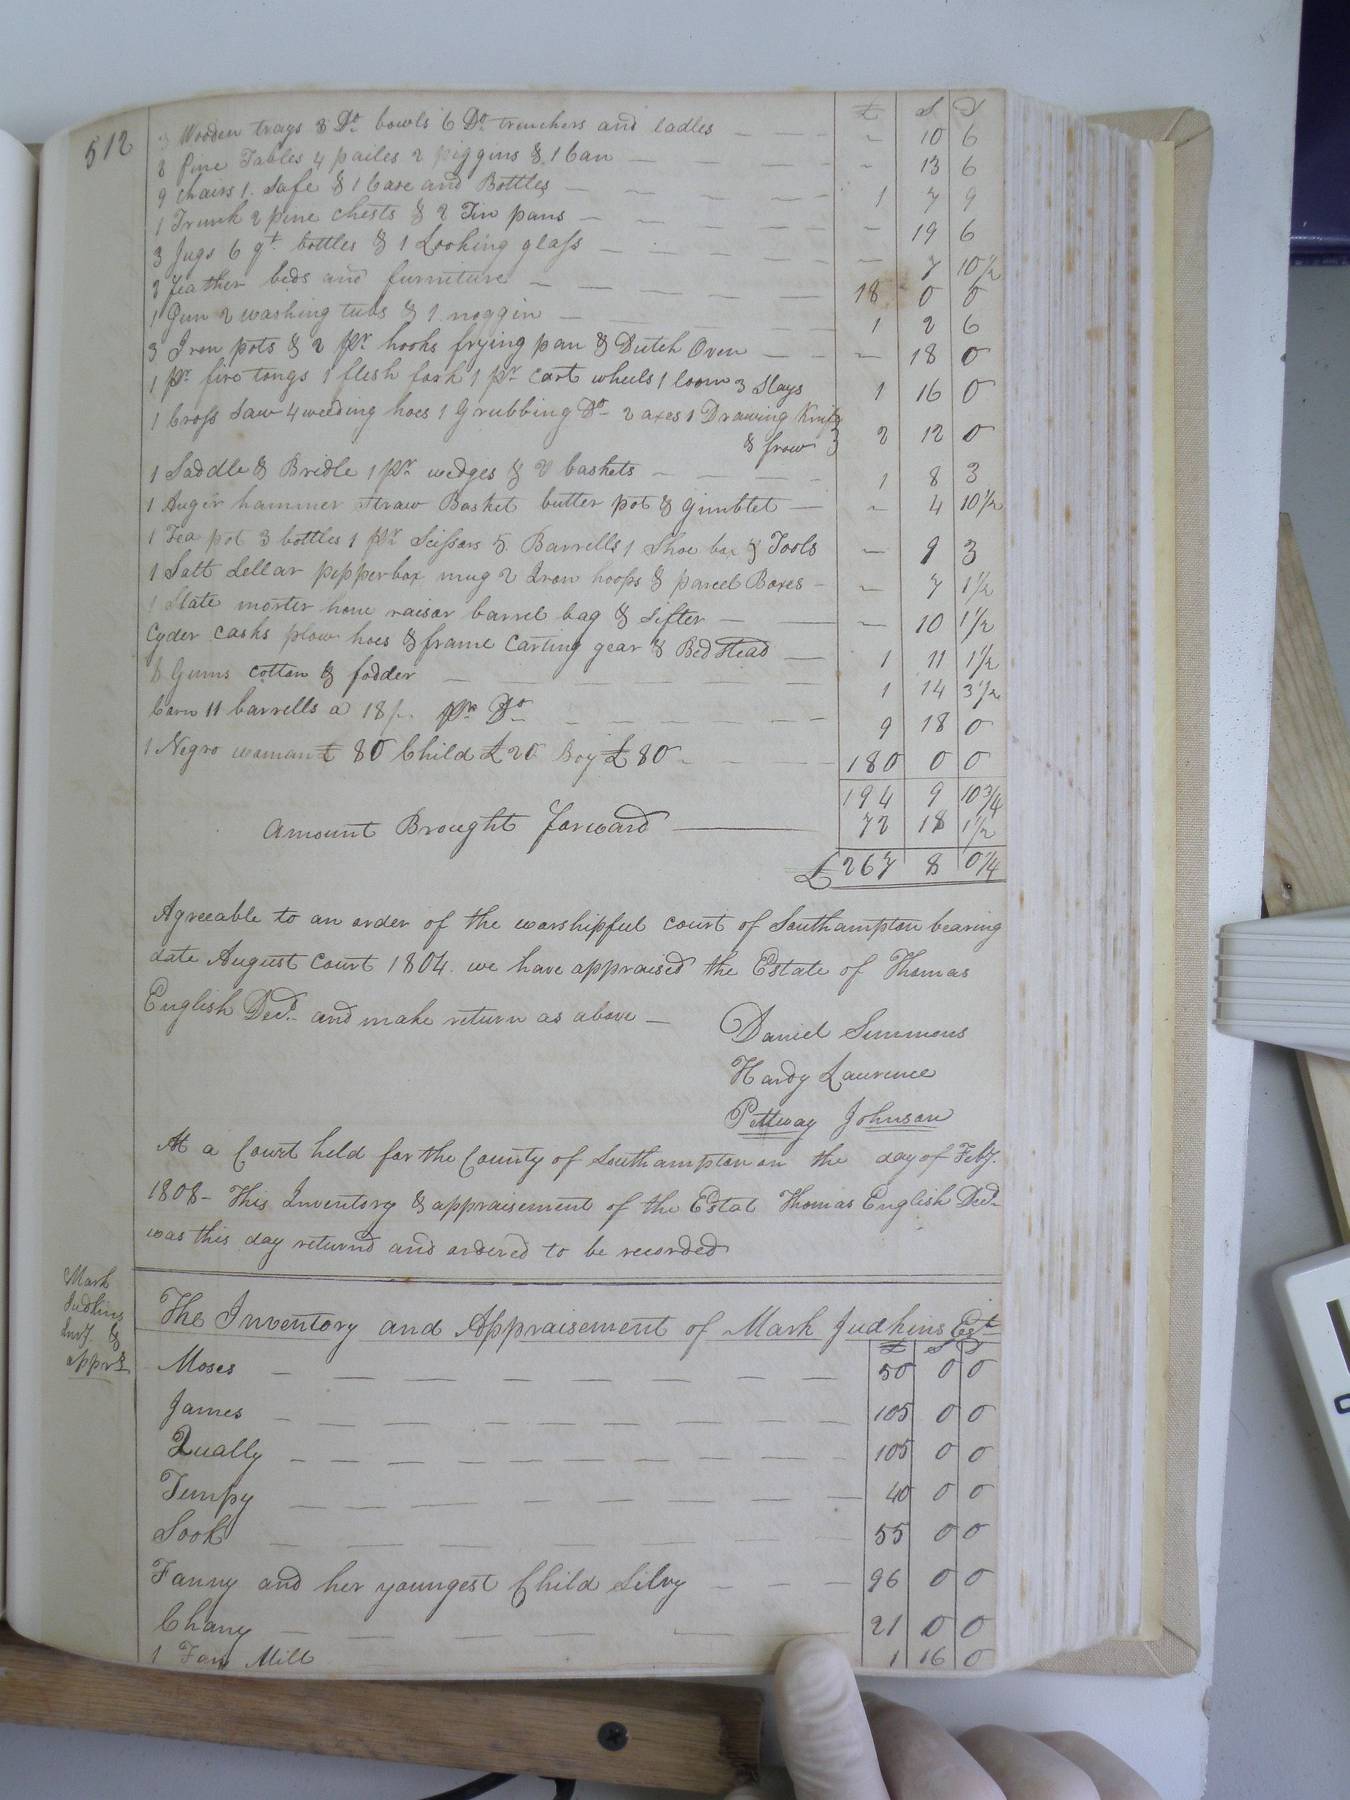 512
£ S D
3 Wooden trays 8 Do. bowls 6 Do. trenchers and ladles — — — - 10 6
2 Pine Tables 4 pailes 2 piggins & 1 Can — — — - 13 6
9 chairs 1 Safe & 1 Case and Bottles — — — 1 7 9
1 Trunk 2 pine chests & 2 Tin pans — — — - 19 6
3 Jugs 6 qt. bottles & 1 Looking glass — — — - 7 10½
3 feather beds and furniture — — — 18 0 0
1 Gun 2 washing tubs & 1 noggin — — — 1 2 6
3 Iron pots & 2 pr. hooks frying pan & Dutch Oven — — - 18 0
1 pr. fire tongs 1 flesh fork 1 pr. cart wheels 1 loom 3 Slays 1 16 0
1 Cross Saw 4 weeding hoes 1 Grubbing Do- 2 axes 1 Drawing Knife
& frow } 2 12 0
1 Saddle & Bridle 1 pr. wedges & 2 baskets — — — 1 8 3
1 Auger hammer Straw Basket butter pot & gimblet — - 4 10½
1 Tea pot 3 bottles 1 pr. Scissors 5 Barrells 1 Shoe box & Tools — 9 3
1 Salt Sellar pepperbox mug 2 Iron hoops & parcel Boxes - — 7 1½
1 Slate morter hone raisor barrel bag & sifter — — — 10 1½
Cyder casks plow hoes & frame Carting gear & Bed Stead — 1 11 1½
8 Gums cotton & fodder — — — 1 14 3½
Corn 11 barrells a 18/- pr. Do — — — 9 18 0
1 Negro woman £ 80 Child £ 20 Boy £ 80 - — — 180 0 0
194 9 10¾
Amount Brought forward — 72 18 1½
£ 267 8 0¼
Agreeable to an order of the worshipful court of Southampton bearing
date August Court 1804 we have appraised the Estate of Thomas
English Decd. and make return as above —
Daniel Simmons
Hardy Laurence
Pettway Johnson
At a Court held for the County of Southampton on the day of Feby.
1808- This Inventory & appraisement of the Estat Thomas English Decd-
was this day returnd and ordered to be recorded
Mark
Judkins
Invy. &
apprt.
The Inventory and Appraisement of Mark Judkins Est
£ S D
Moses — — — 50 0 0
James — — — 105 0 0
Qually — — — 105 0 0
Tempy — — — 40 0 0
Sook — — — 55 0 0
Fanny and her youngest Child Silvy — — — 96 0 0
Chany — — — 21 0 0
1 Fan Mill 1 16 0